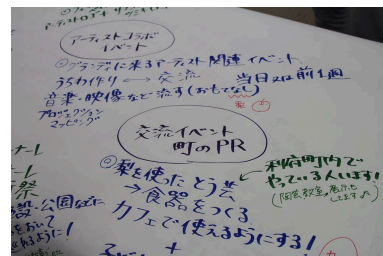 アーティストコラボ
イベント
◎グランディに来るアーティスト関連イベント
うちわ作り ←→ 交流 当日又は前1週
音楽・映像など流す(おもてなし)
プロジェクション
マッピング
交流イベント
町のPR
◎梨を使ったとう芸
→食器をつくる
カフェで使えるようにする!
+
← 利府町内で
やっている人います!
(陶芸教室。展示も
してます。)
ナーレ
ナーレ
祭
公園などに